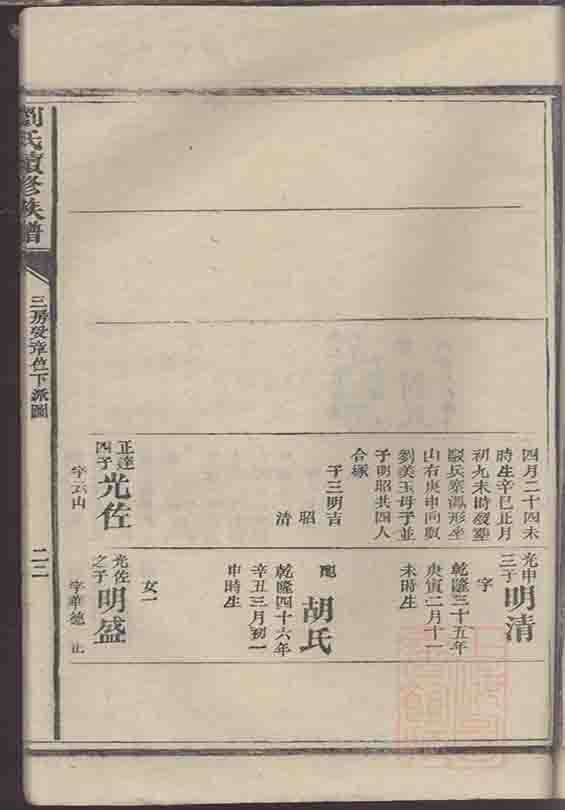 四月二十四未
時生辛巳正月
初九未時歿塟
山右庚申向與
劉美玉母子並
子明昭共四人
合塚
子三明吉
昭
清
正達
四子
光佐
字云山
光申
三子
明清
字
乾隆三十五年
庚寅二月十一
未時生
配
胡氏
乾隆四十六年
辛丑三月初一
申時生
女一
光佐
之子
明盛
字華德
止
劉氏續修族譜
三房受章位下派圖
二二